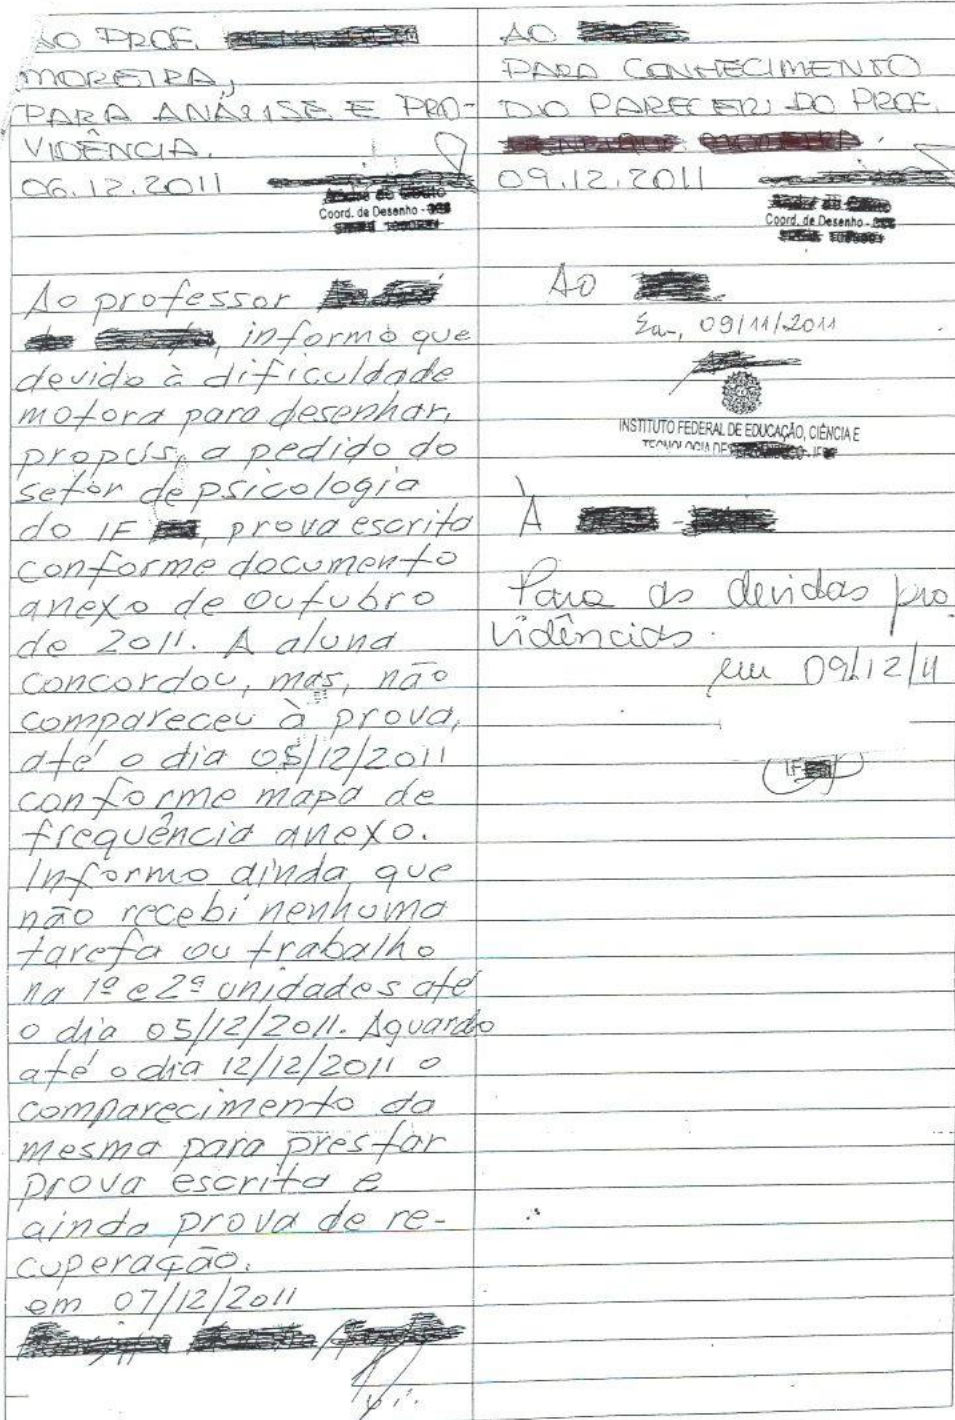 AO PROF.
MOREIRA,
PARA ANÁLISE E PRO-
VIDÊNCIA.
06.12.2011
Coord. de Desenho -
Ao professor
, informo que
devido à dificuldade
motora para desenhar,
propús, a pedido do
setor de psicologia
do IF , prova escrita
conforme documento
anexo de Outubro
de 2011. A aluna
concordou, mas, não
compareceu à prova,
até o dia 05/12/2011
conforme mapa de
frequência anexo.
Informo ainda que
não recebi nenhuma
tarefa ou trabalho
na 1ª e 2ª unidades até
o dia 05/12/2011. Aguardo
até o dia 12/12/2011 o
comparecimento da
mesma para prestar
prova escrita e
ainda prova de re-
cuperação.
em 07/12/2011
AO
PARA CONHECIMENTO
DO PARECER DO PROF.
09.12.2011
Coord. de Desenho -
Ao
09/11/2011
INSTITUTO FEDERAL DE EDUCAÇÃO, CIÊNCIA E
TECNOLOGIA DE
À
Para as devidas pro
vidências.
em 09/12/11
IF